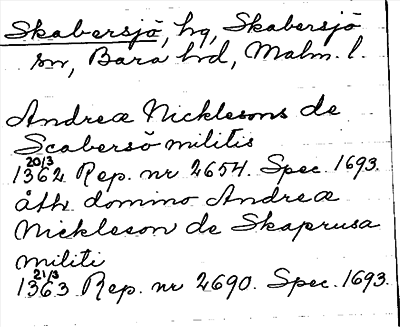 Skabersjö, hg, Skabersjö
sn, Bara hd, Malm. l.
Andreæ Nicklesons de
Scabersö militis
20/3
1362 Rep. nr 2654. Spec. 1693.
åth. domino Andreæ
Nickleson de Skaprusa
militi
21/3
1363 Rep. nr 2690. Spec. 1693.